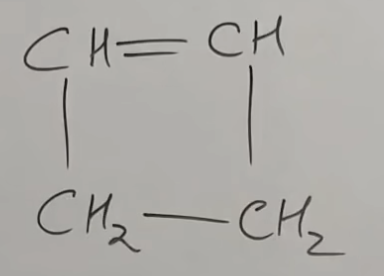 CH=CH
CH₂—CH₂